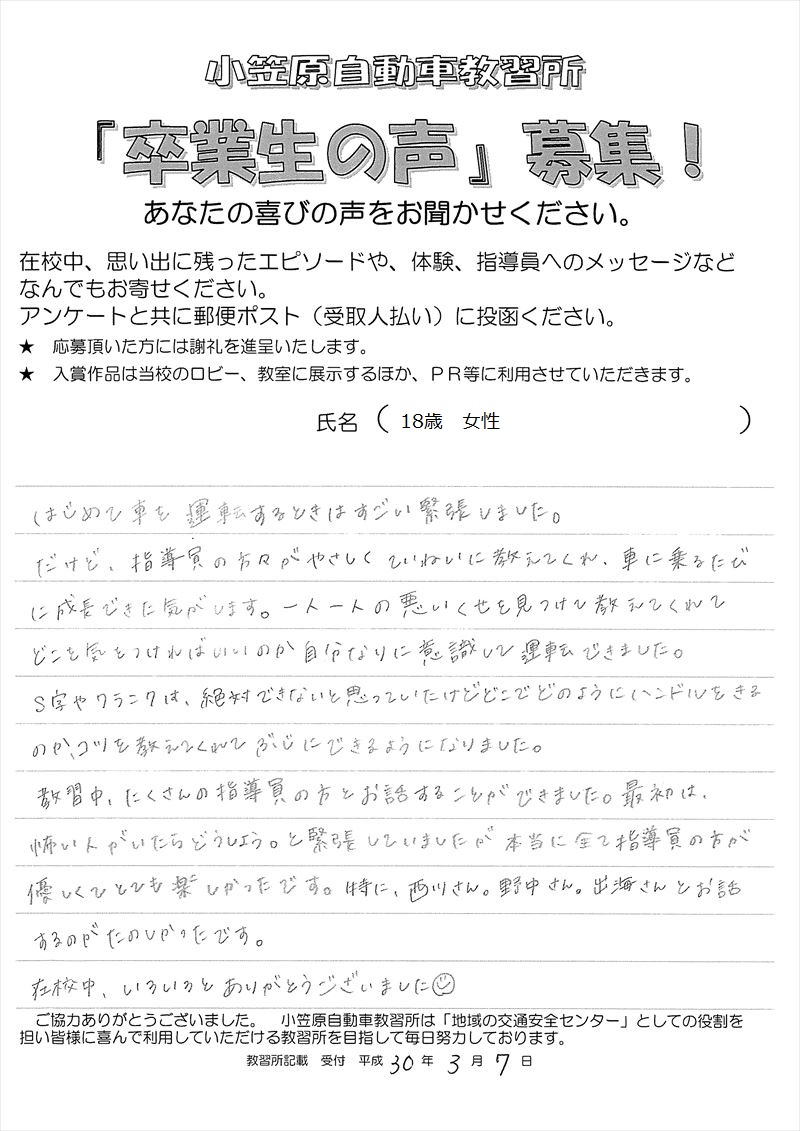 小笠原自動車教習所
『卒業生の声』募集！
あなたの喜びの声をお聞かせください。
在校中、思い出に残ったエピソードや、体験、指導員へのメッセージなど
なんでもお寄せください。
アンケートと共に郵便ポスト（受取人払い）に投函ください。
★　応募頂いた方には謝礼を進呈いたします。
★　入賞作品は当校のロビー、教室に展示するほか、ＰＲ等に利用させていただきます。
氏名（ 18歳　女性 ）
はじめて車を運転するときはすごい緊張しました。
だけど、指導員の方々がやさしくていねいに教えてくれ、車に乗るたび
に成長できた気がします。一人一人の悪いくせを見つけて教えてくれて
どこを気をつければいいのか自分なりに意識して運転できました。
S字やクランクは、絶対できないと思っていたけどどこでどのようにハンドルをきる
のか、コツを教えてくれてぶじにできるようになりました。
教習中、たくさんの指導員の方とお話することができました。最初は、
怖い人がいたらどうしよう。と緊張していましたが本当に全て指導員の方が
優しくてとても楽しかったです。特に、西川さん。野中さん。出海さんとお話
するのがたのしかったです。
在校中、いろいろとありがとうございました☺
ご協力ありがとうございました。　小笠原自動車教習所は「地域の交通安全センター」としての役割を
担い皆様に喜んで利用していただける教習所を目指して毎日努力しております。
教習所記載　受付　平成 30 年 3 月 7 日